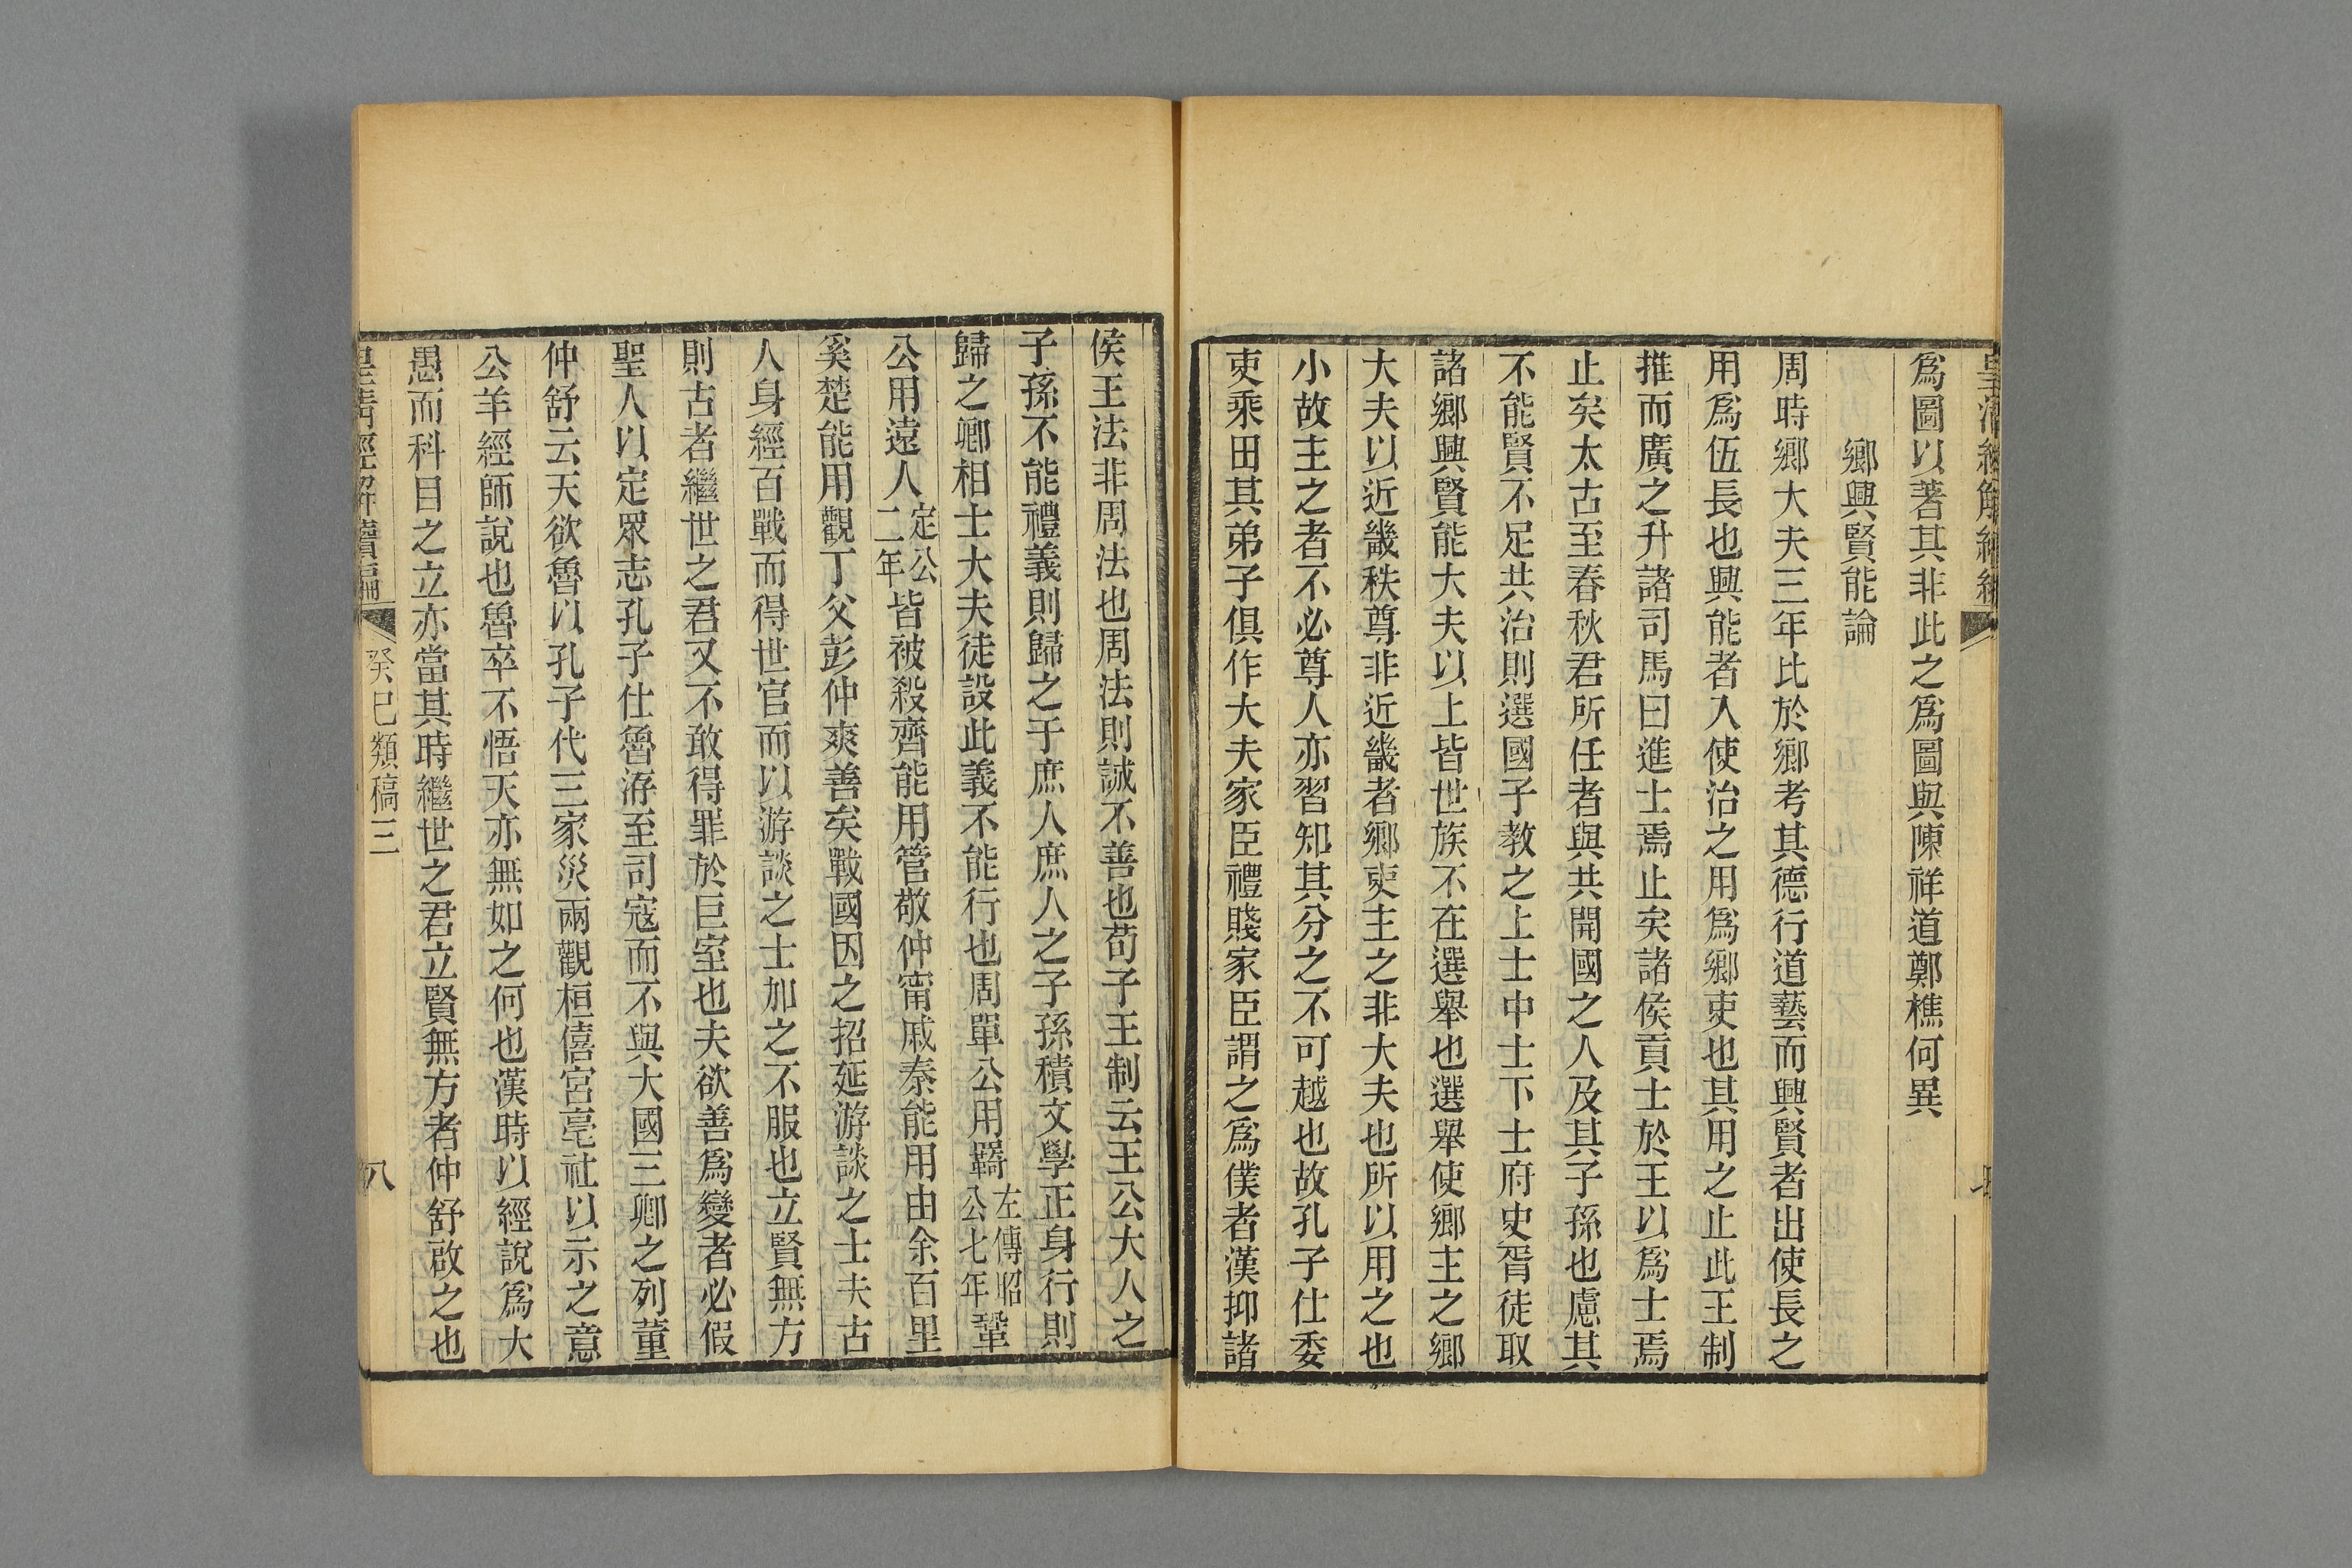 皇清經解續編
爲圖以著其非此之爲圖與陳祥道鄭樵何異
鄉興賢能論
周時鄉大夫三年比於鄉考其德行道藝而興賢者出使長之
用爲伍長也興能者入使治之用爲鄉吏也其用之止此王制
推而廣之升諸司馬曰進士焉止矣諸侯貢士於王以爲士焉
止矣太古至春秋君所任者與共開國之人及其子孫也慮其
不能賢不足共治則選國子教之上士中士下士府史胥徒取
諸鄉興賢能大夫以上皆世族不在選舉也選舉使鄉主之鄉
大夫以近畿秩尊非近畿者鄉吏主之非大夫也所以用之也
小故主之者不必尊人亦習知其分之不可越也故孔子仕委
吏乘田其弟子俱作大夫家臣禮賤家臣謂之爲僕者漢抑諸
侯王法非周法也周法則誠不善也荀子王制云王公大人之
子孫不能禮義則歸之于庶人庶人之子孫積文學正身行則
歸之卿相士大夫徒設此義不能行也周單公用羈左傳昭公七年鞏
公用遠人定公二年皆被殺齊能用管敬仲甯戚秦能用由余百里
奚楚能用觀丁父彭仲爽善矣戰國因之招延游談之士夫古
人身經百戰而得世官而以游談之士加之不服也立賢無方
則古者繼世之君又不敢得罪於巨室也夫欲善爲變者必假
聖人以定眾志孔子仕魯洊至司寇而不與大國三卿之列董
仲舒云天欲魯以孔子代三家災兩觀桓僖宮亳社以示之意
公羊經師說也魯卒不悟天亦無如之何也漢時以經說爲大
愚而科目之立亦當其時繼世之君立賢無方者仲舒啟之也
皇清經解續編 癸巳類稿三 八